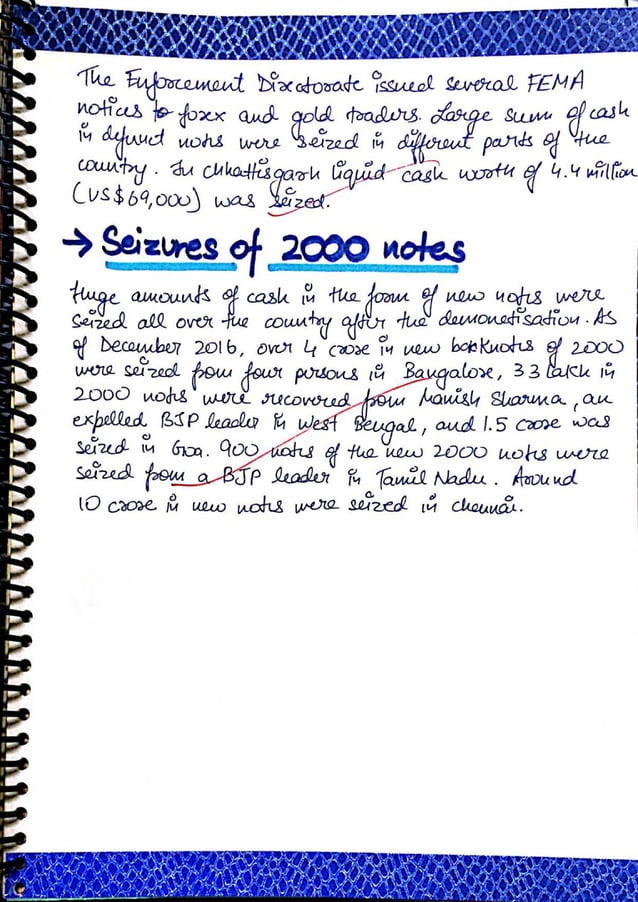 The Enforcement Directorate issued several FEMA
notices to forex and gold traders. Large sum of cash
in defunct notes were seized in different parts of the
country. In chhattisgarh liquid cash worth of 4.4 million
(US$69,000) was seized.
→ Seizures of 2000 notes
Huge amounts of cash in the form of new notes were
seized all over the country after the demonetisation. As
of December 2016, over 4 crore in new banknotes of 2000
were seized from four persons in Bangalore, 33 lakh in
2000 notes were recovered from Manish Sharma, an
expelled BJP leader in West Bengal, and 1.5 crore was
seized in Goa. 900 notes of the new 2000 notes were
seized from a BJP leader in Tamil Nadu. Around
10 crore in new notes were seized in chennai.